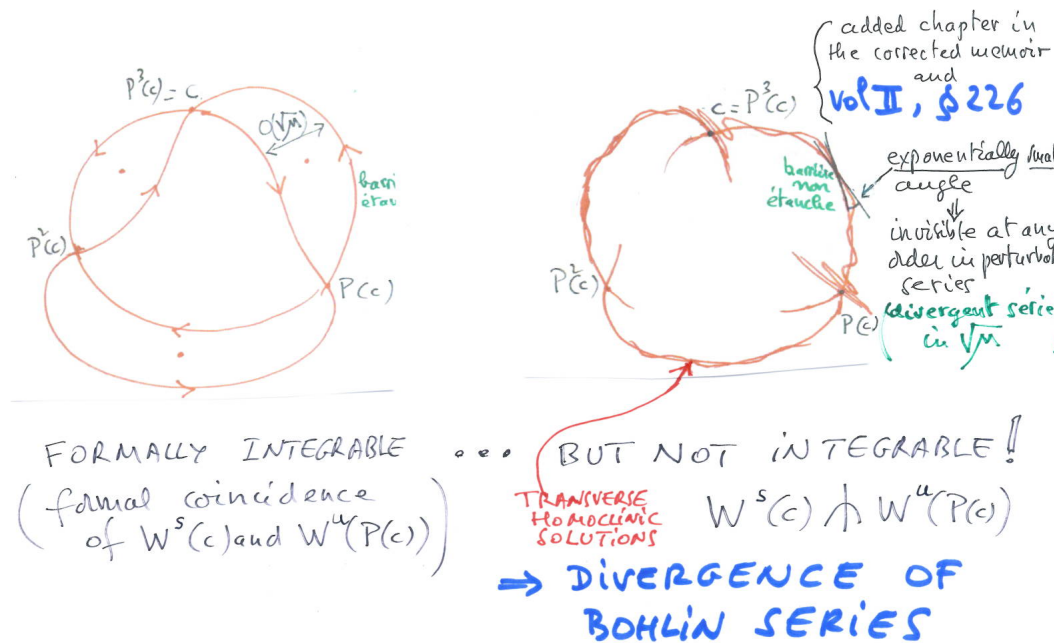 P³(c) = c
O(√M)
barri
étan
P²(c)
P(c)
added chapter in
the corrected memoir
and
vol II, § 226
c = P³(c)
barrière
non
étanche
exponentially small
angle
⇓
invisible at any
order in perturb
series
(divergent série
in √M
P²(c)
P(c)
FORMALLY INTEGRABLE ... BUT NOT iNTEGRABLE!
(formal coincidence
of Wˢ(c) and Wᵘ(P(c)))
TRANSVERSE
HOMOCLINIC
SOLUTIONS
Wˢ(c) ⋔ Wᵘ(P(c))
⇒ DiVERGENCE OF
BOHLIN SERIES